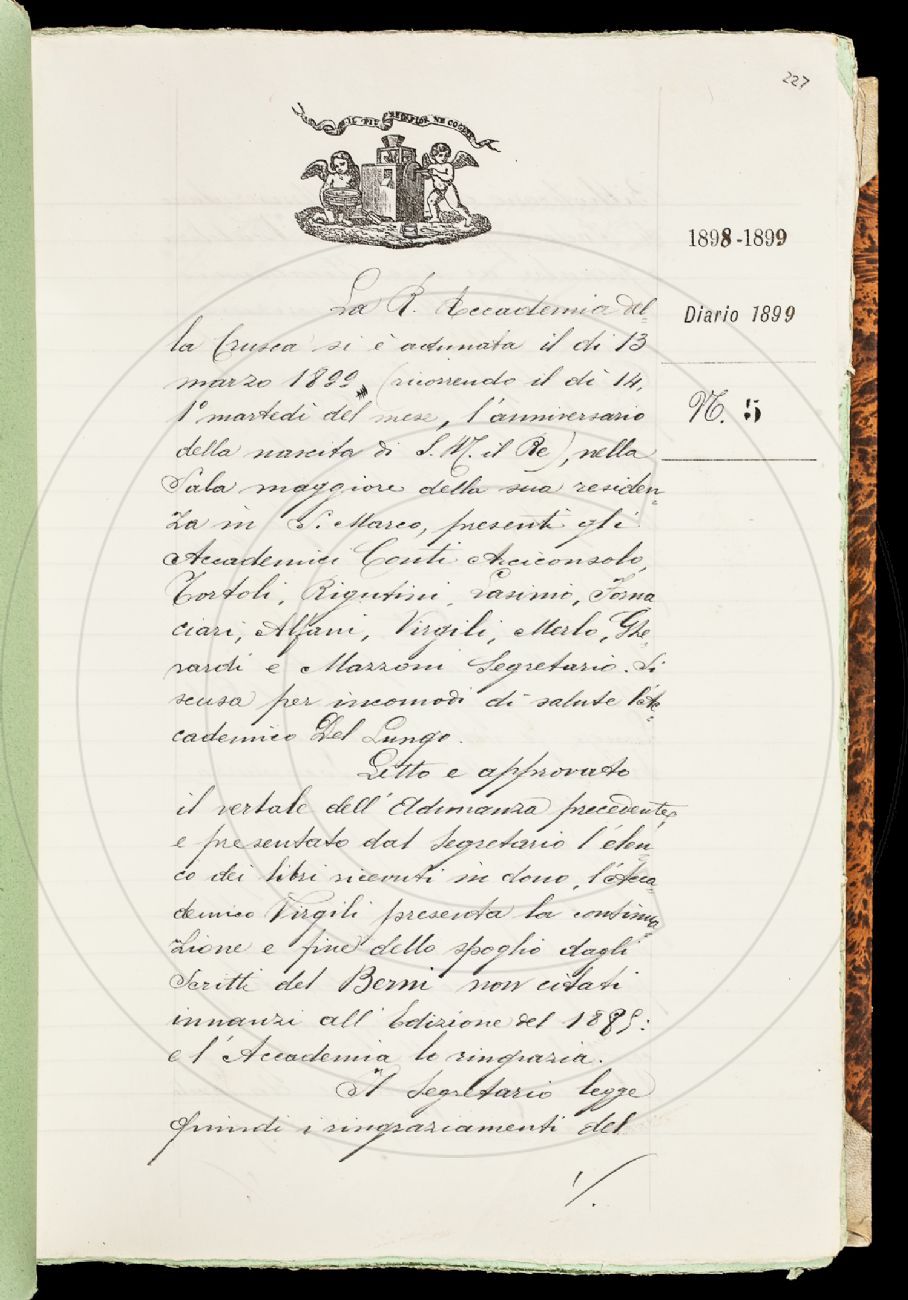 227
IL PIÙ BEL FIOR NE COGLIE
1898-1899
Diario 1899
N. 5
La R. Accademia del=
la Crusca si è adunata il dì 13
marzo 1899 (ricorrendo il dì 14,
1° martedì del mese, l'anniversario
della nascita di S. M. il Re), nella
Sala maggiore della sua residen=
za in S. Marco, presenti gli
Accademici Conti Arciconsolo,
Tortoli, Rigutini, Rasimo, Forna
ciari, Alfani, Virgili, Merlo, Ghe=
rardi e Mazzoni Segretario. Si
scusa per incomodi di salute l'Ac=
cademico Del Lungo.
Letto e approvato
il verbale dell'Adunanza precedente,
e presentato dal Segretario l'elen=
co dei libri ricevuti in dono, l'Acca=
demico Virgili presenta la continua=
zione e fine dello spoglio dagli
Scritti del Berni non citati
innanzi all'Edizione del 1885:
e l'Accademia lo ringrazia.
Il Segretario legge
quindi i ringraziamenti del
./.